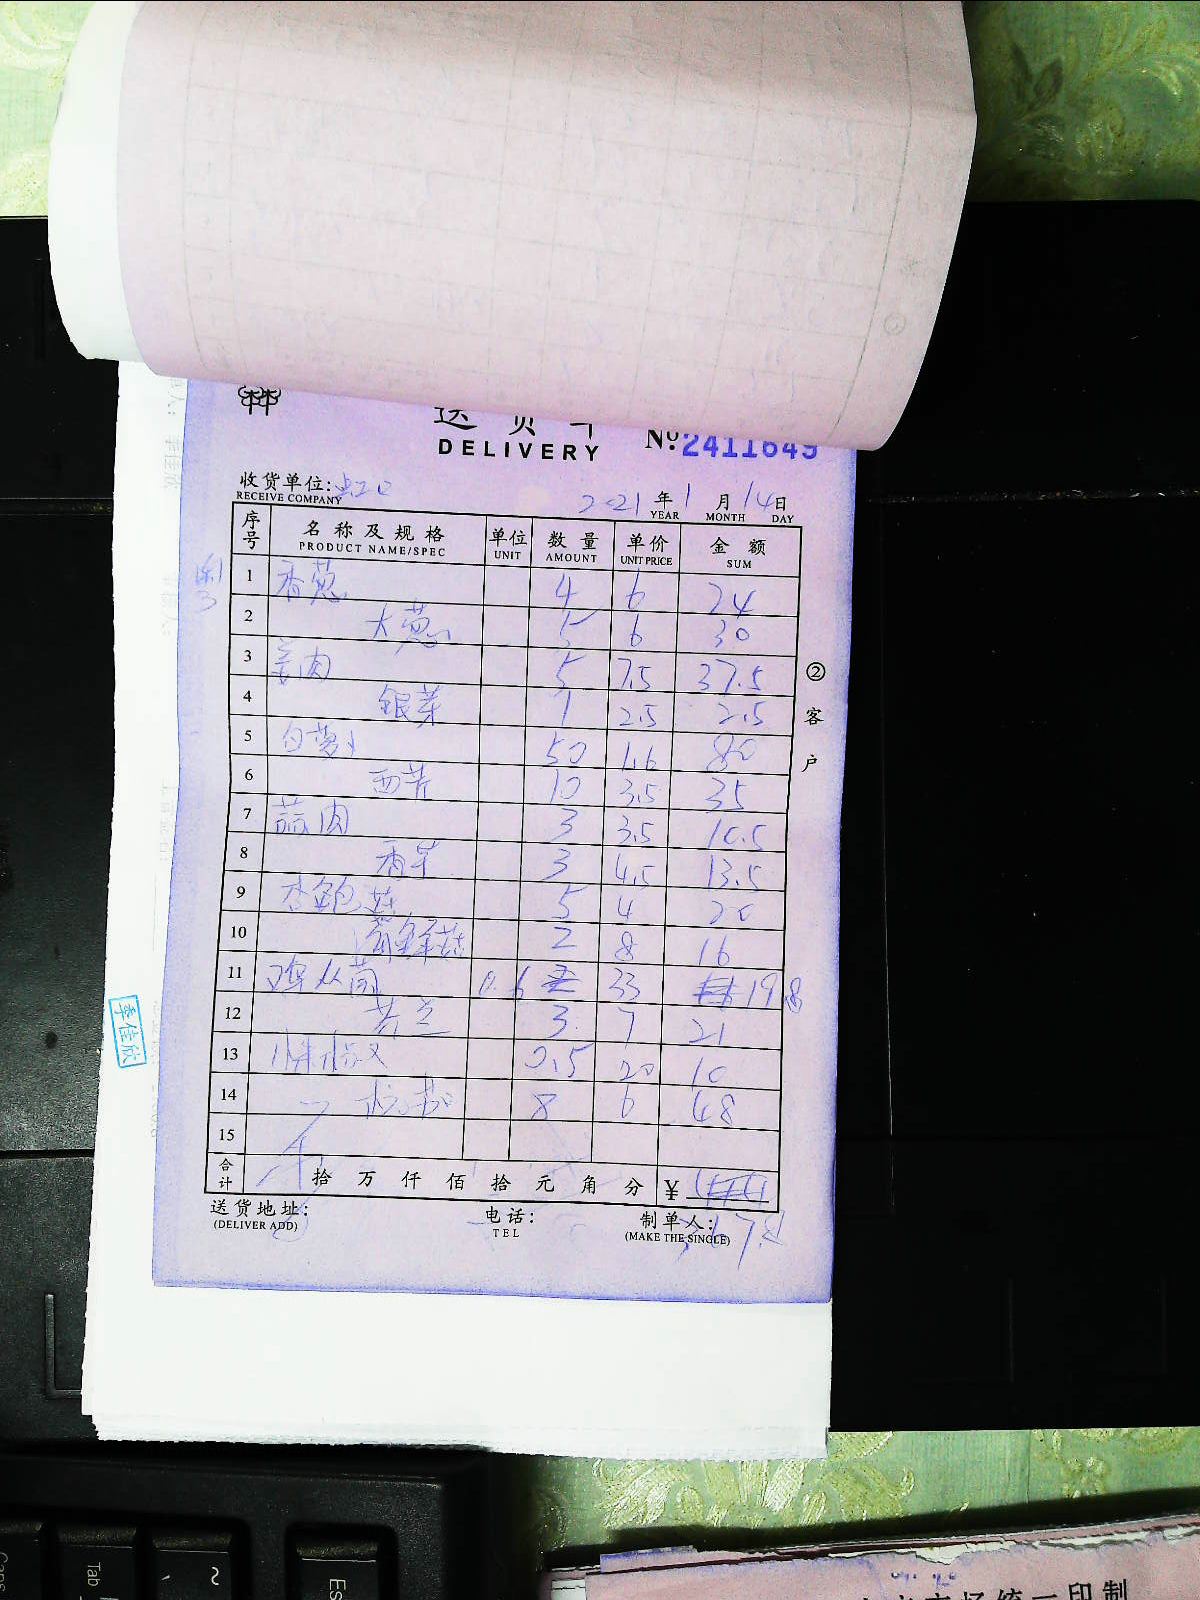 送货单
DELIVERY
№: 2411649
收货单位:
RECEIVE COMPANY
2021年1月14日
YEAR MONTH DAY
序号 名称及规格 单位 数量 单价 金额
PRODUCT NAME/SPEC UNIT AMOUNT UNIT PRICE SUM
1 香葱 4 6 24
2 大葱 5 6 30
3 姜肉 5 7.5 37.5
4 银芽 1 2.5 2.5
5 白萝卜 50 1.6 80
6 西芹 10 3.5 35
7 蒜肉 3 3.5 10.5
8 香芹 3 4.5 13.5
9 杏鲍菇 5 4 20
10 2 8 16
11 0.6 33 19.8
12 3 7 21
13 0.5 20 10
14 8 6 48
15
合计 拾 万 仟 佰 拾 元 角 分 ¥
送货地址: 电话: 制单人:
(DELIVER ADD) TEL (MAKE THE SINGLE)
②客户
李佳欣
Tab
~
Es
市场统一印制